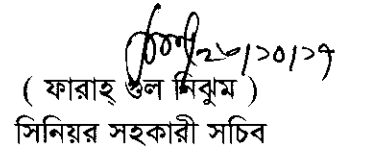 ২৬/১০/১৭
( ফারাহ্ গুল নিঝুম )
সিনিয়র সহকারী সচিব